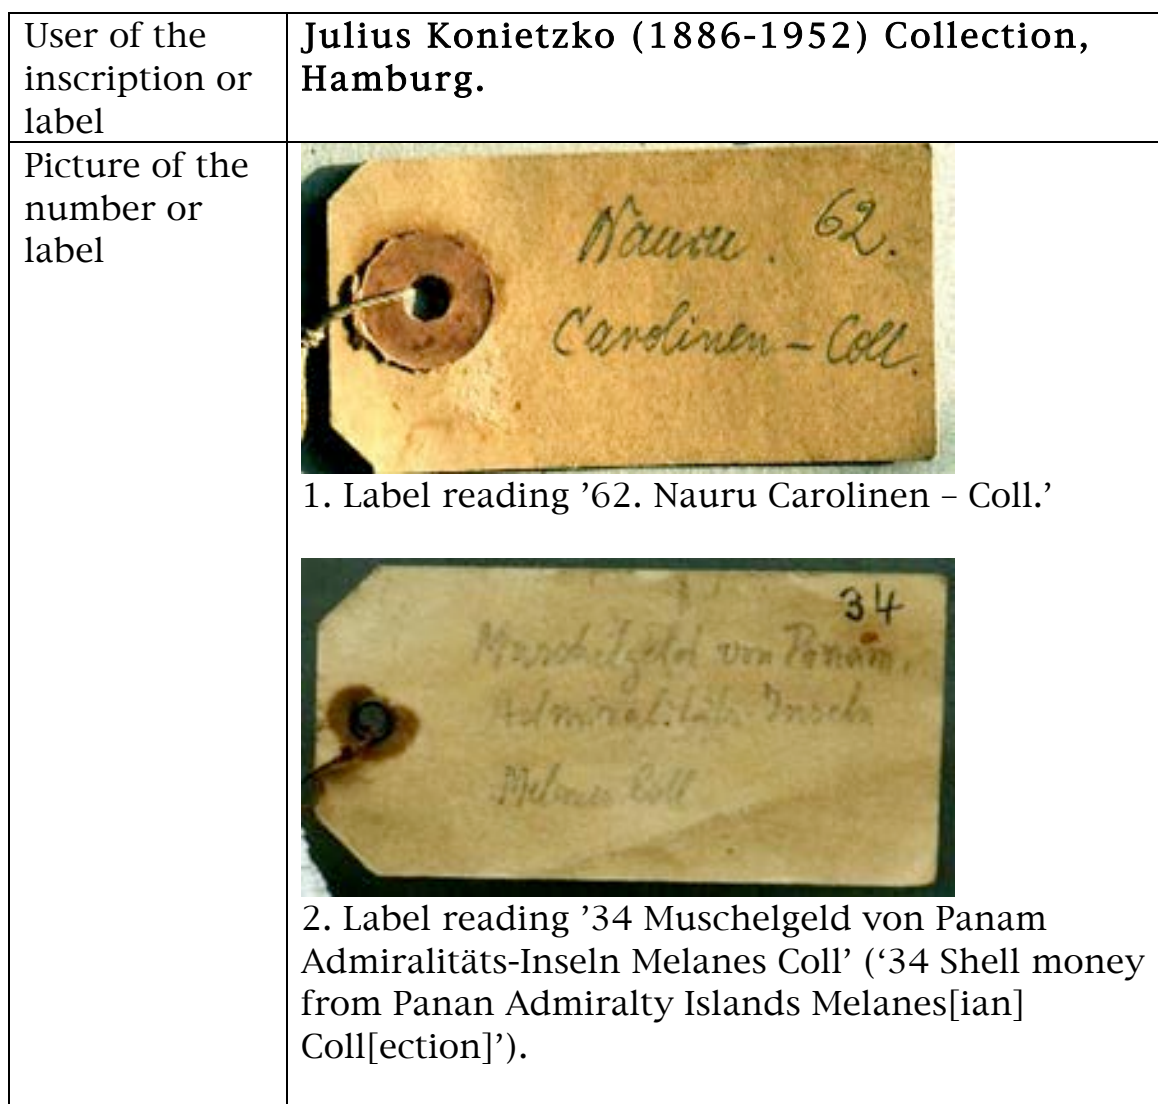 User of the
inscription or
label
Julius Konietzko (1886-1952) Collection,
Hamburg.
Picture of the
number or
label
Nauru. 62.
Carolinen – Coll.
1. Label reading ’62. Nauru Carolinen – Coll.’
34
Muschelgeld von Panam.
Admiralitäts-Inseln
Melanes Coll
2. Label reading ’34 Muschelgeld von Panam
Admiralitäts-Inseln Melanes Coll’ (‘34 Shell money
from Panan Admiralty Islands Melanes[ian]
Coll[ection]’).